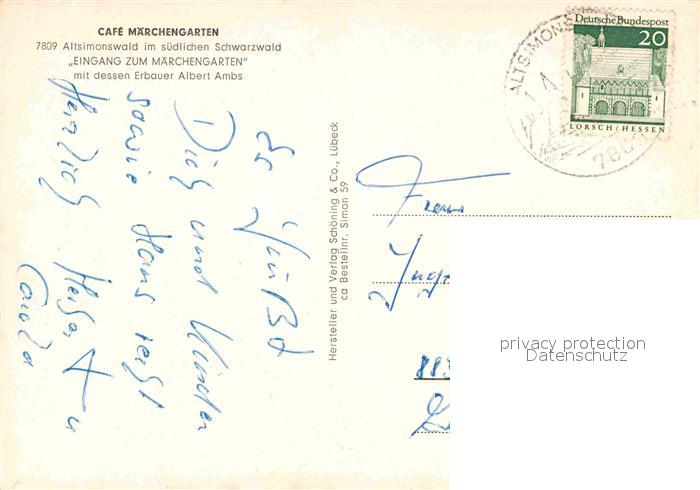 CAFÉ MÄRCHENGARTEN
7809 Altsimonswald im südlichen Schwarzwald
„EINGANG ZUM MÄRCHENGARTEN"
mit dessen Erbauer Albert Ambs
Es grüßt
Dich und Kinder
sowie Hans recht
herzlich
Hersteller und Verlag Schöning & Co., Lübeck
ca Bestellnr. Simon 59
ALTSIMONS
780
Deutsche Bundespost
20
LORSCH/HESSEN
Frau
883
privacy protection
Datenschutz